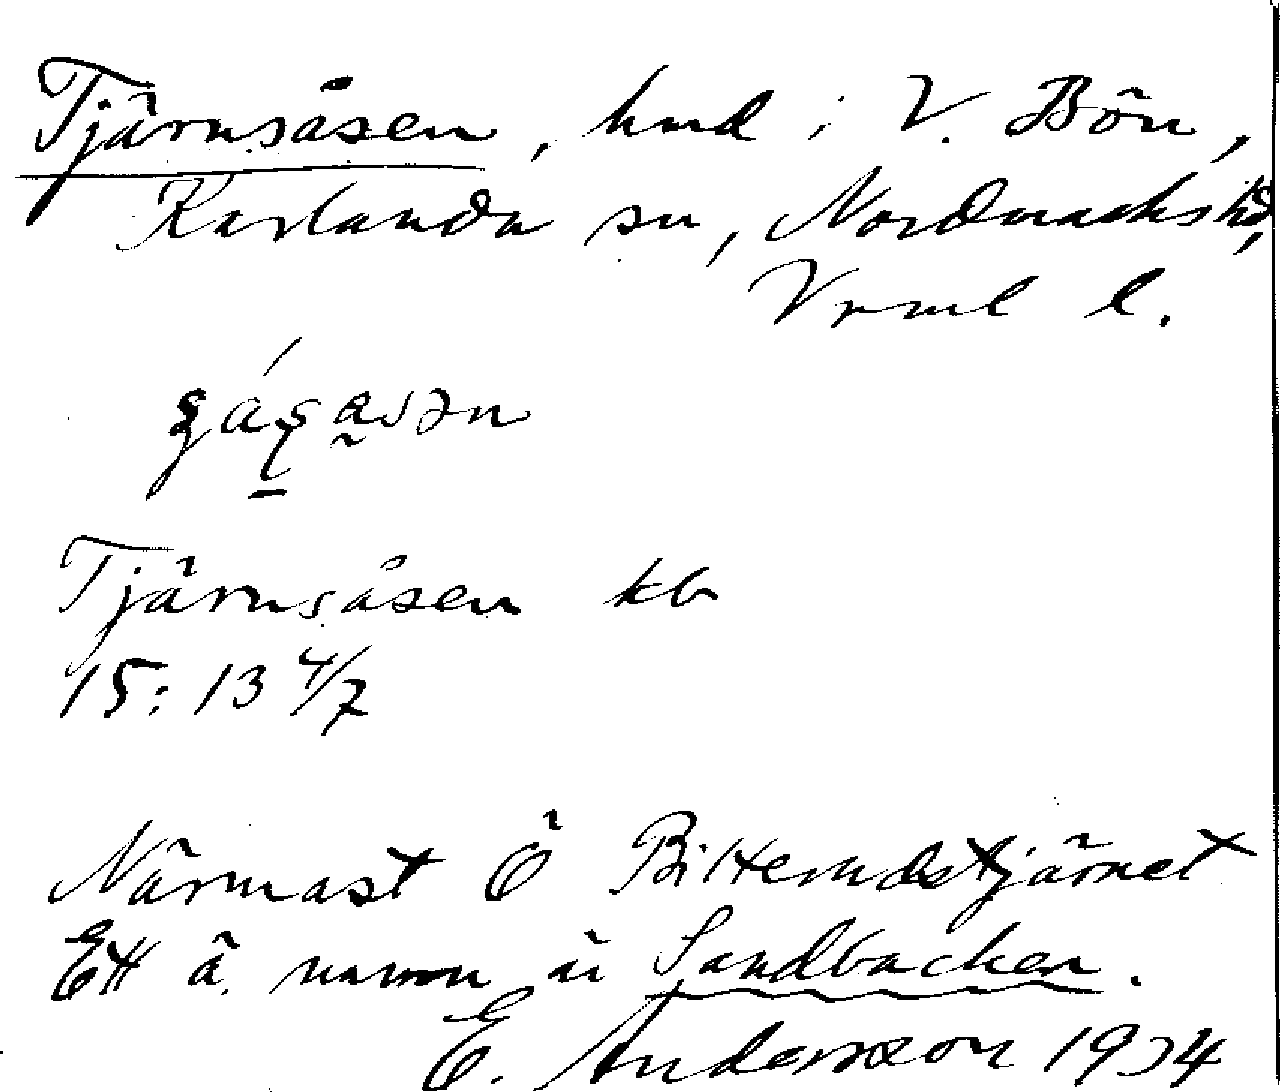 Tjärnsåsen, hmd i V. Bön,
Karlanda sn, Nordmarks hd,
Vrml l.
Tjärnsåsen kb
15:13 4/7
Närmast Ö Bitterudstjärnet
Ett ä. namn är Sandbacken.
E. Andersson 1934